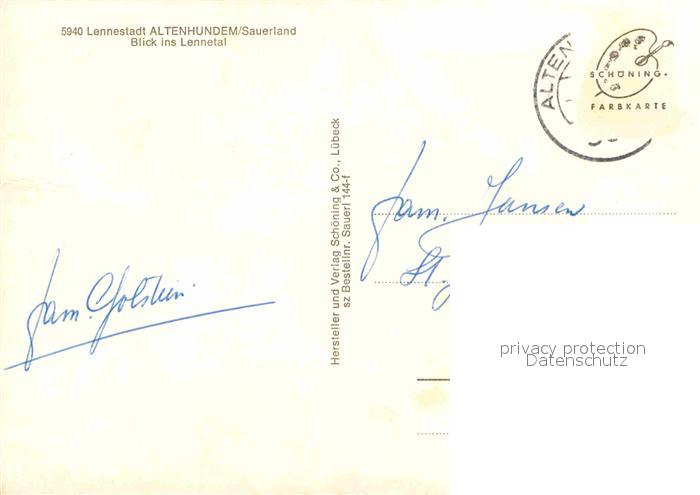 5940 Lennestadt ALTENHUNDEM/Sauerland
Blick ins Lennetal
ALTEN
SCHÖNING
FARBKARTE
Hersteller und Verlag Schöning & Co., Lübeck
sz Bestellnr. Sauerl 144-f
fam. Jansen
St.
fam.
privacy protection
Datenschutz